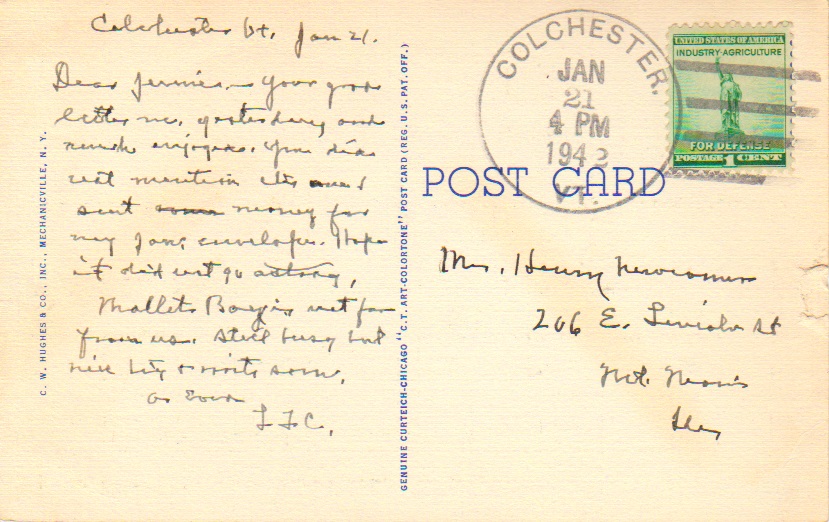 Colchester Vt. Jan 21.
Dear Jennie, Your good
letter rec. yesterday and
much enjoyed. You did
not mention
sent money for
my Jan. envelopes. Hope
it did not go astray.
Mallets Bay is not far
from us. Still busy but
will try & write soon.
as Ever
L.F.C.
C. W. HUGHES & CO., INC., MECHANICVILLE, N. Y.
GENUINE CURTEICH-CHICAGO "C.T. ART-COLORTONE" POST CARD (REG. U.S. PAT. OFF.)
COLCHESTER.
JAN
21
4 PM
1942
VT.
UNITED STATES OF AMERICA
INDUSTRY·AGRICULTURE
FOR DEFENSE
POSTAGE 1 CENT
POST CARD
Mrs. Henry Newcomer
206 E. Lincoln St
Mt. Morris
Ills